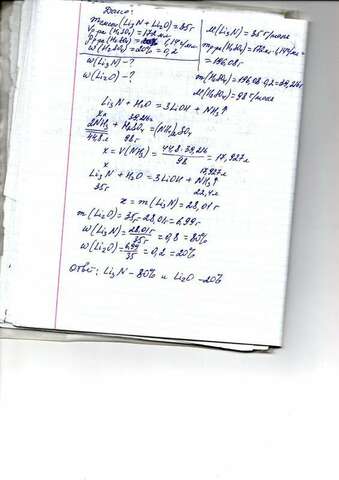 Дано:
m смеси (Li₃N + Li₂O) = 35 г
Vр-ра (H₂SO₄) = 172 мл
ρр-ра (H₂SO₄) = 1,14 г/мл
w (H₂SO₄) = 20% = 0,2
w (Li₃N) - ?
w (Li₂O) - ?
M (Li₃N) = 35 г/моль
mр-ра (H₂SO₄) = 172 мл · 1,14 г/мл =
= 196,08 г
m (H₂SO₄) = 196,08 · 0,2 = 39,216 г
M (H₂SO₄) = 98 г/моль
Li₃N + H₂O = 3LiOH + NH₃↑
x л 39,216
2NH₃ + H₂SO₄ = (NH₄)₂SO₄
44,8 л 98 г
x = V (NH₃) = 44,8 · 39,216 / 98 = 17,927 л
x 17,927 л
Li₃N + H₂O = 3LiOH + NH₃↑
35 г 22,4 л
x = m (Li₃N) = 28,01 г
m (Li₂O) = 35 г - 28,01 г = 6,99 г
w (Li₃N) = 28,01 г / 35 г = 0,8 = 80%
w (Li₂O) = 6,99 / 35 = 0,2 = 20%
Ответ: Li₃N - 80% и Li₂O - 20%